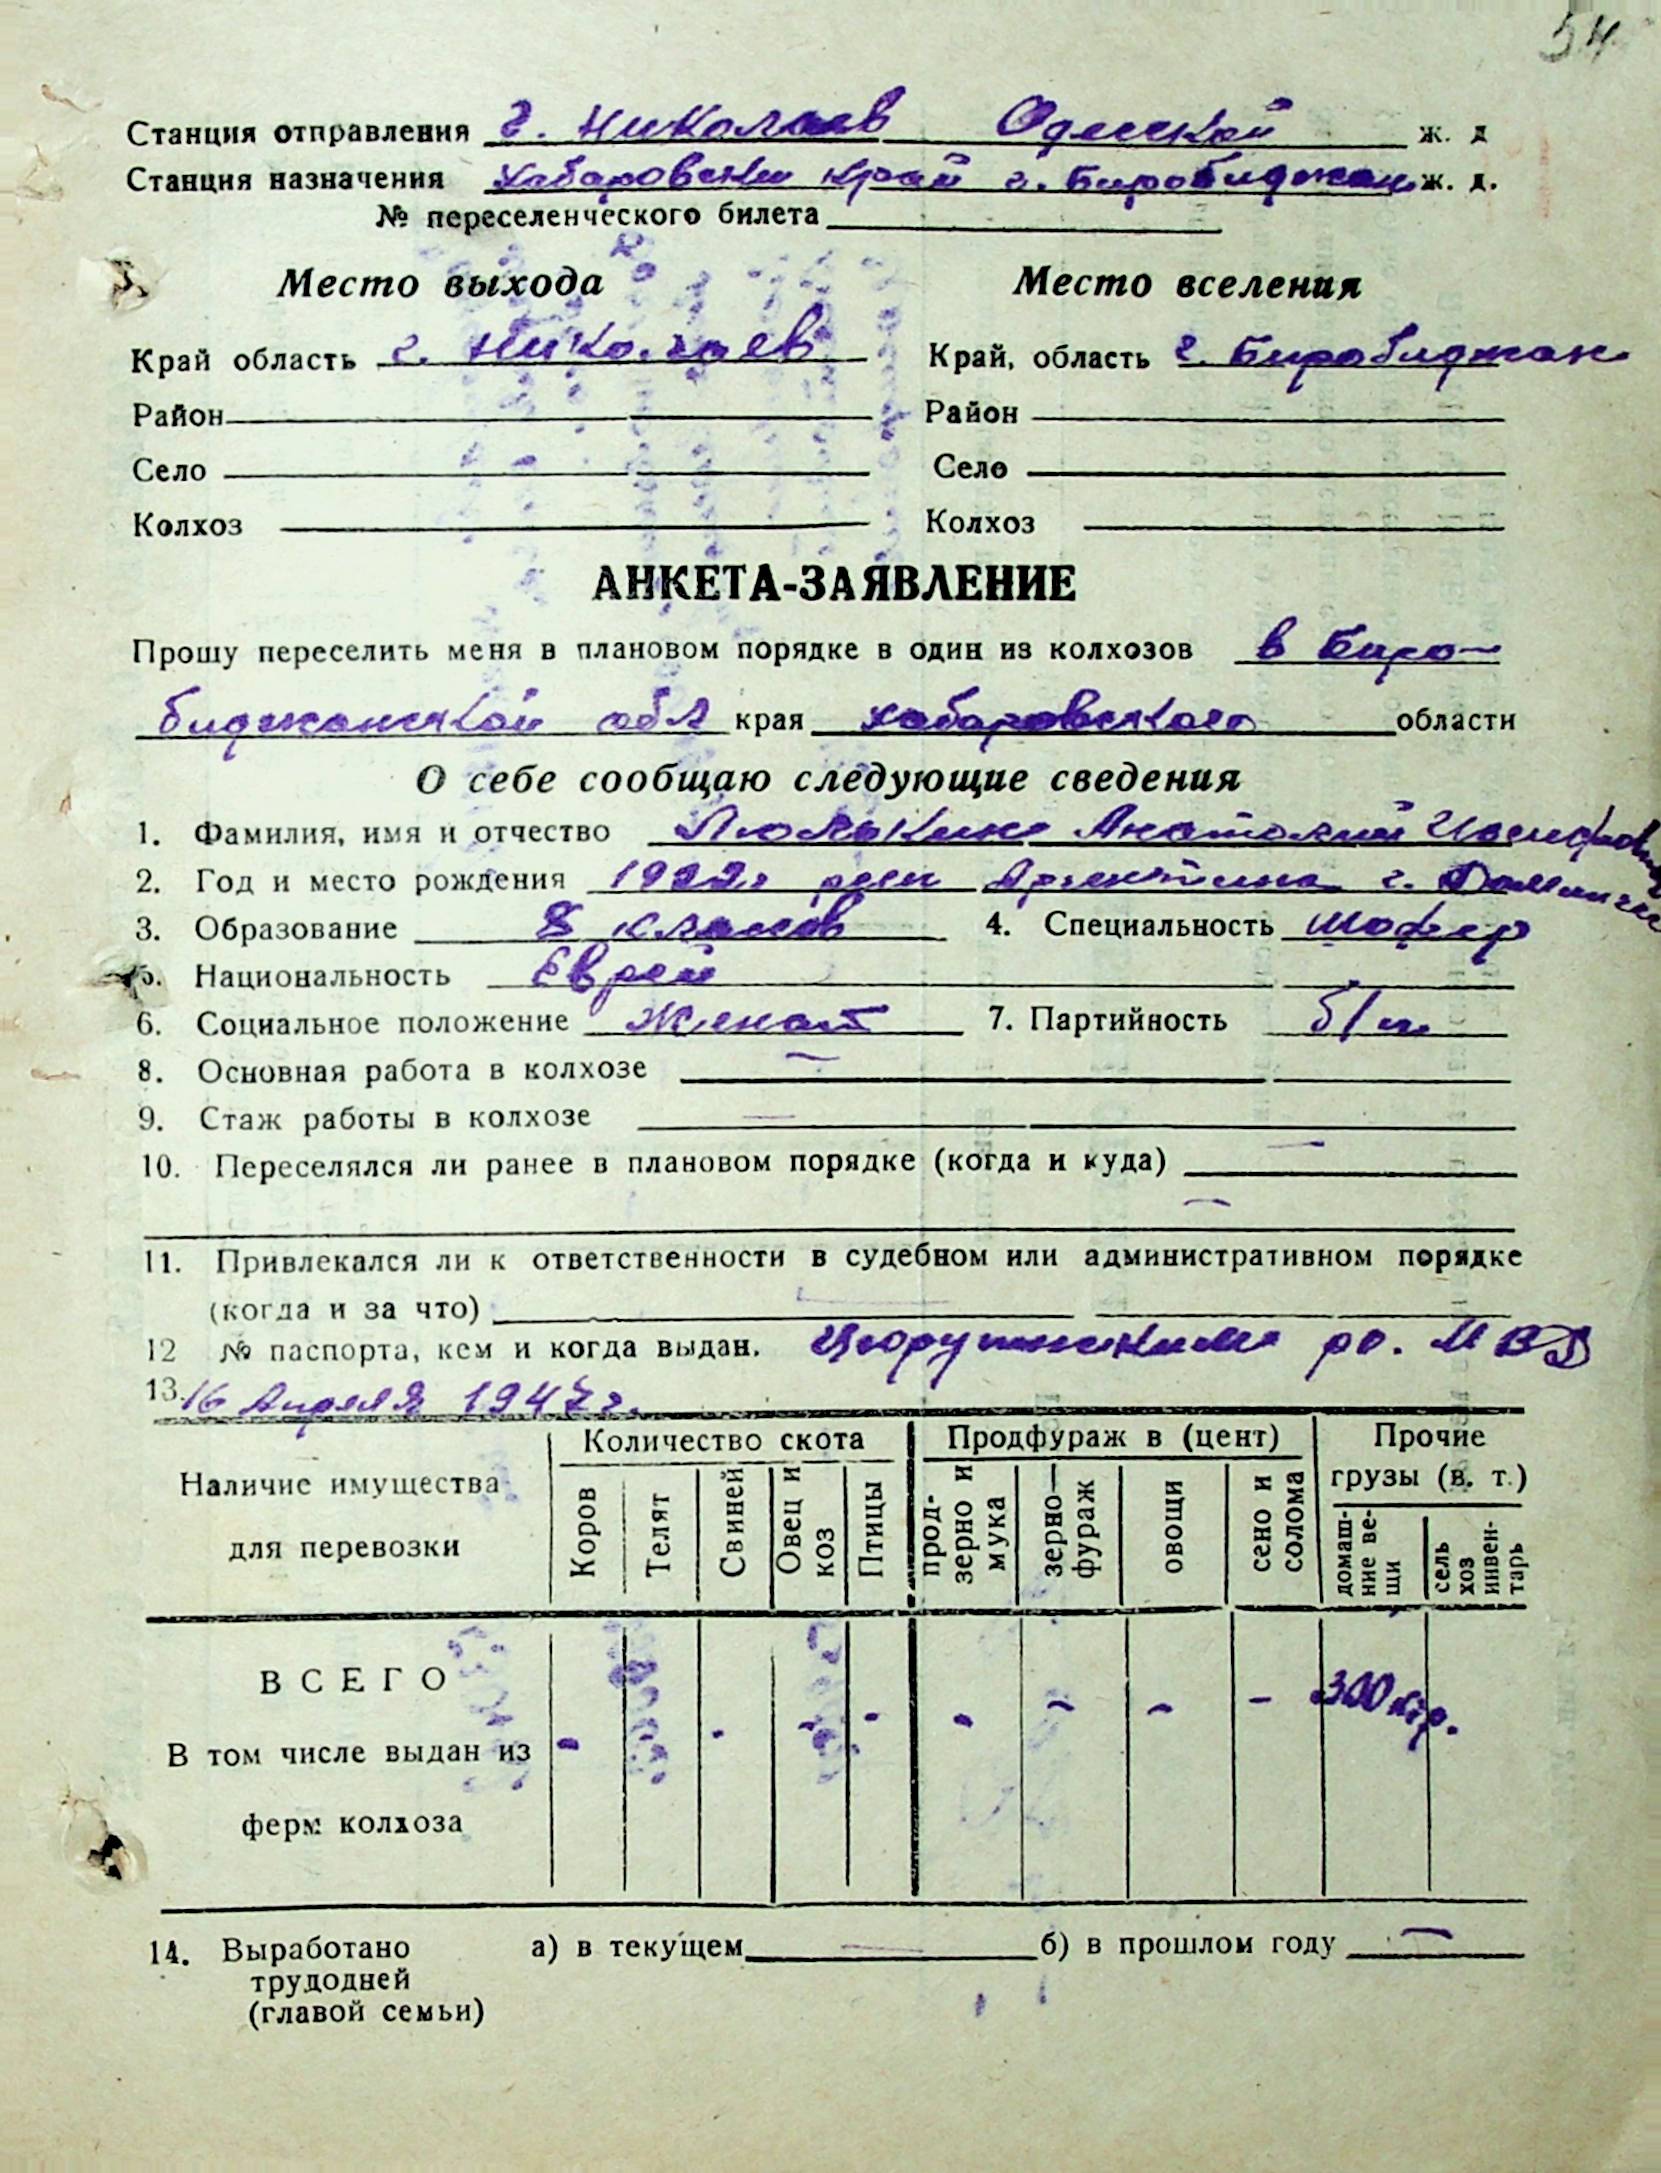 54
Станция отправления г. Николаев Одесской ж. д
Станция назначения Хабаровски край г. Биробиджан ж. д.
№ переселенческого билета
Место выхода Место вселения
Край область г. Николаев Край, область г. Биробиджан
Район Район
Село Село
Колхоз Колхоз
АНКЕТА-ЗАЯВЛЕНИЕ
Прошу переселить меня в плановом порядке в один из колхозов в Биро-
биджанской обл края Хабаровского области
О себе сообщаю следующие сведения
1. Фамилия, имя и отчество Люлькин Анатолий Иосифович
2. Год и место рождения 1922г Аргентина г.
3. Образование 8 классов 4. Специальность шофер
5. Национальность Еврей
6. Социальное положение Женат 7. Партийность б/п.
8. Основная работа в колхозе —
9. Стаж работы в колхозе —
10. Переселялся ли ранее в плановом порядке (когда и куда) —
—
11. Привлекался ли к ответственности в судебном или административном порядке
(когда и за что) —
12 № паспорта, кем и когда выдан. Цюрупинским ро. МВД
13. 16 Апреля 1947г.
Наличие имущества для перевозки
Количество скота Продфураж в (цент) Прочие грузы (в. т.)
Коров Телят Свиней Овец и коз Птицы прод-зерно и мука зерно-фураж овощи сено и солома домаш-ние ве-щи сель хоз инвен-тарь
ВСЕГО - - - - - - - - 300 кгр.
В том числе выдан из
ферм колхоза
14. Выработано а) в текущем — б) в прошлом году —
трудодней
(главой семьи)